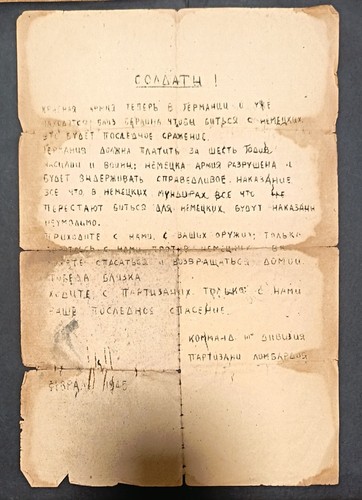 СОЛДАТЫ!
КРАСНАЯ АРМИЯ ТЕПЕРЬ В ГЕРМАНИИ И УЖЕ
БЛИЗ БЕРЛИНА ЧТОБЫ БИТЬСЯ С НЕМЕЦКИХ.
ЭТО БУДЕТ ПОСЛЕДНОЕ СРАЖЕНИЕ.
ГЕРМАНИЯ ДОЛЖНА ПЛАТИТЬ ЗА ШЕСТЬ ГОДИВ
НАСИЛИИ И ВОИНИ; НЕМЕЦКА АРМИЯ РАЗРУШЕНА И
БУДЕТ ЗНДЕРЖИВАТЬ СПРАВЕДЛИВОЕ НАКАЗАНИЕ
ВСЕ ЧТО В НЕМЕЦКИХ МУНДИРАХ, ВСЕ ЧТО НЕ
ПЕРЕСТАЮТ БИТЬСЯ ДЛЯ НЕМЕЦКИХ, БУДУТ НАКАЗАНИ
НЕУМОЛИМО.
ПРИХОДИТЕ С НАМИ, С ВАШИХ ОРУЖИИ; ТОЛЬКО
С НАМИ ПРОТИВ НЕМЕЦКИХ В
СПАСАТЬСЯ И ВОЗВРАЩАТЬСЯ ДОМОИ.
ПОБЕДА БЛИЗКА.
ХОДИТЕ С ПАРТИЗАНИХ. ТОЛЬКО С НАМИ
ВАШЕ ПОСЛЕДНОЕ СПАСЕНИЕ.
КОММАНД. ДИВИЗИЯ
ПАРТИЗАНИ ЛОМБАРДОИ
ФЕВРА 1945